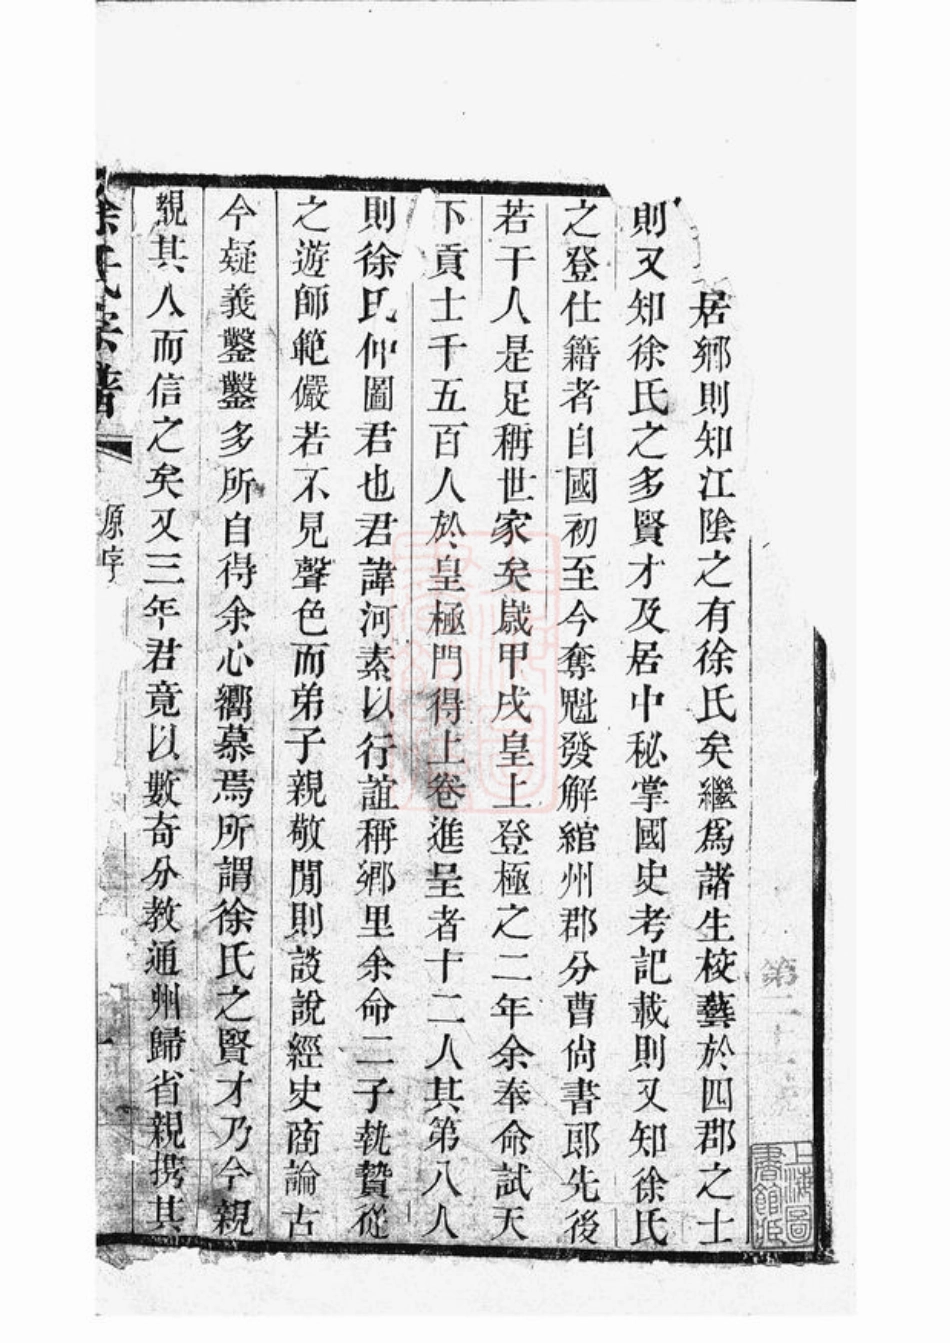 居鄉則知江陰之有徐氏矣繼爲諸生校藝於四郡之士
則又知徐氏之多賢才及居中秘掌國史考記載則又知徐氏
之登仕籍者自國初至今奪魁發解綰州郡分曹尙書郎先後
若干人是足稱世家矣歲甲戌皇上登極之二年余奉命試天
下貢士千五百人於皇極門得上卷進呈者十二人其第八人
則徐氏仲圖君也君諱河素以行誼稱鄉里余命二子執贄從
之遊師範儼若不見聲色而弟子親敬閒則談說經史商論古
今疑義鑿鑿多所自得余心嚮慕焉所謂徐氏之賢才乃今親
覩其人而信之矣又三年君竟以數奇分教通州歸省親携其
徐氏宗譜
原序
第二十
上海圖書館藏